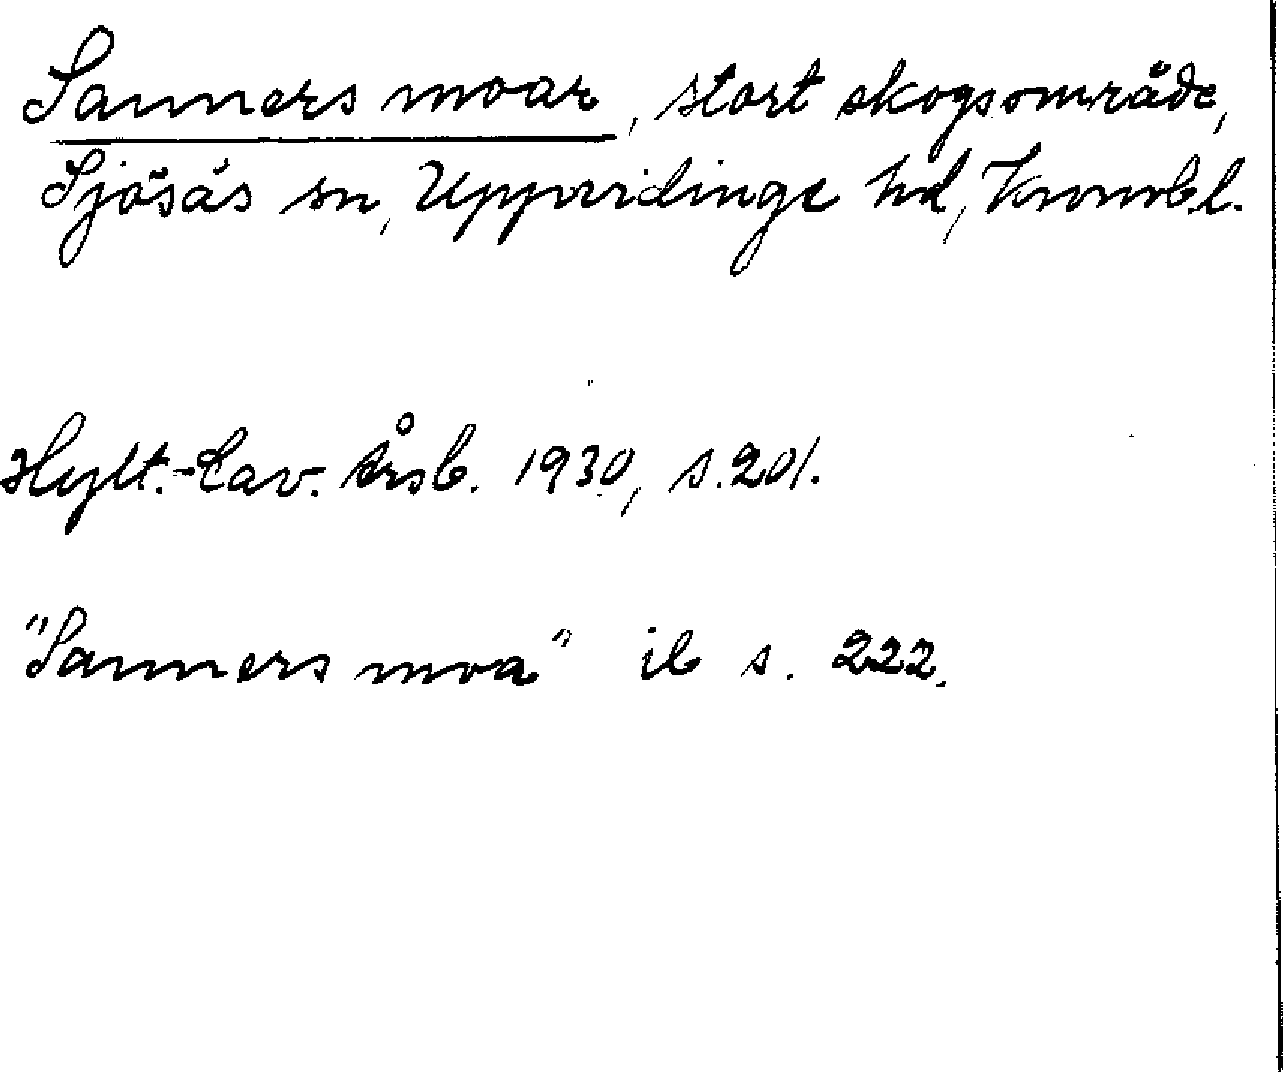 Sanners moar, stort skogsområde,
Sjösås sn, Uppvidinge hd, Kronob.l.
Hylt.-Cav. årsb. 1930, s. 201.
"Sanners moa" ib s. 222.